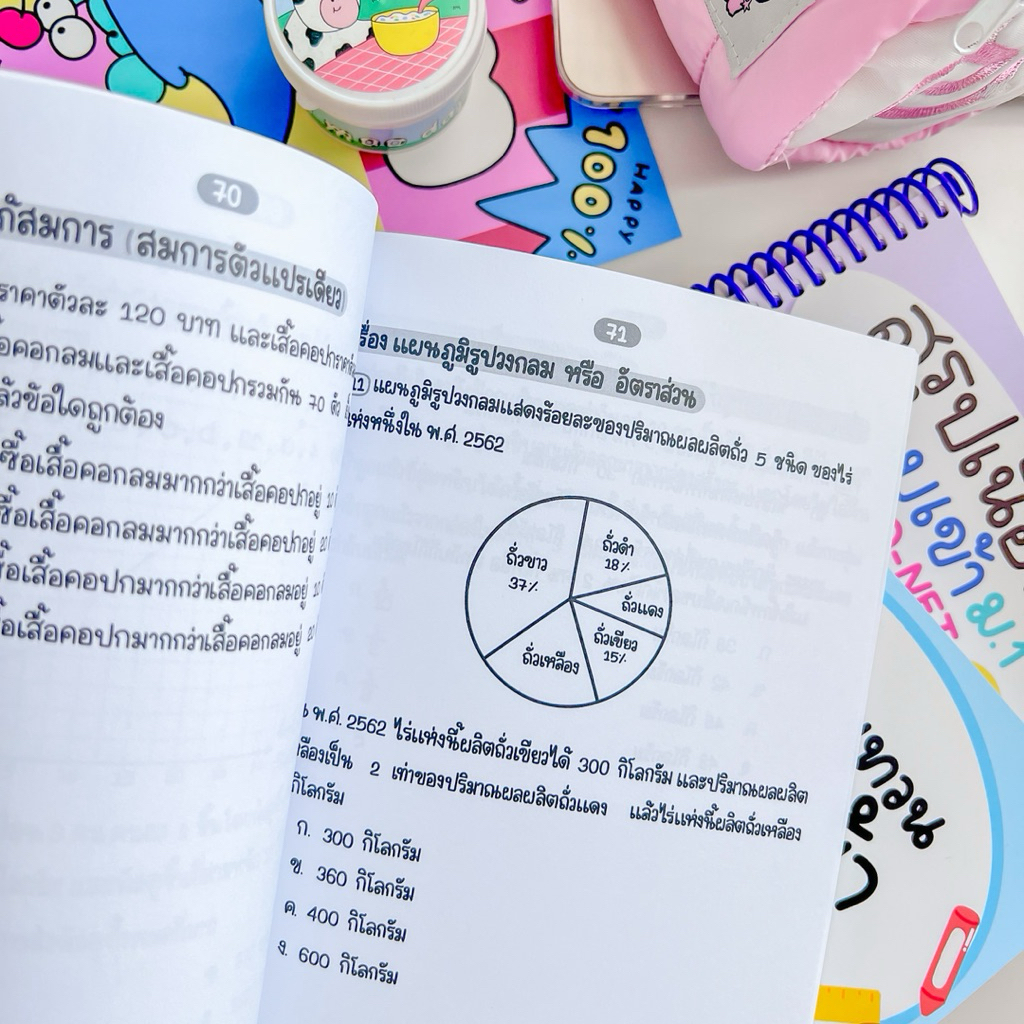 70
สมการ (สมการตัวแปรเดียว)
ราคาตัวละ 120 บาท และเสื้อคอปก
คอกลมและเสื้อคอปกรวมกัน 70 ตัว
ข้อใดถูกต้อง
ซื้อเสื้อคอกลมมากกว่าเสื้อคอปกอยู่ 10
ซื้อเสื้อคอกลมมากกว่าเสื้อคอปกอยู่ 20
เสื้อคอปกมากกว่าเสื้อคอกลมอยู่ 10
เสื้อคอปกมากกว่าเสื้อคอกลมอยู่ 20
71
เรื่อง แผนภูมิรูปวงกลม หรือ อัตราส่วน
11 แผนภูมิรูปวงกลมแสดงร้อยละของปริมาณผลผลิตถั่ว 5 ชนิด ของไร่
แห่งหนึ่งใน พ.ศ. 2562
ถั่วขาว
37%
ถั่วดำ
18%
ถั่วแดง
ถั่วเขียว
15%
ถั่วเหลือง
พ.ศ. 2562 ไร่แห่งนี้ผลิตถั่วเขียวได้ 300 กิโลกรัม และปริมาณผลผลิต
เหลืองเป็น 2 เท่าของปริมาณผลผลิตถั่วแดง แล้วไร่แห่งนี้ผลิตถั่วเหลือง
กิโลกรัม
ก. 300 กิโลกรัม
ข. 360 กิโลกรัม
ค. 400 กิโลกรัม
ง. 600 กิโลกรัม
100%
HAPPY
สรุปเนื้อ
เข้า ม.1
-NET
ทวน